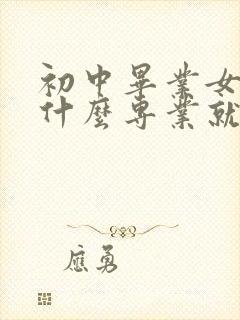 初中畢業女
什麼專業就
應勇